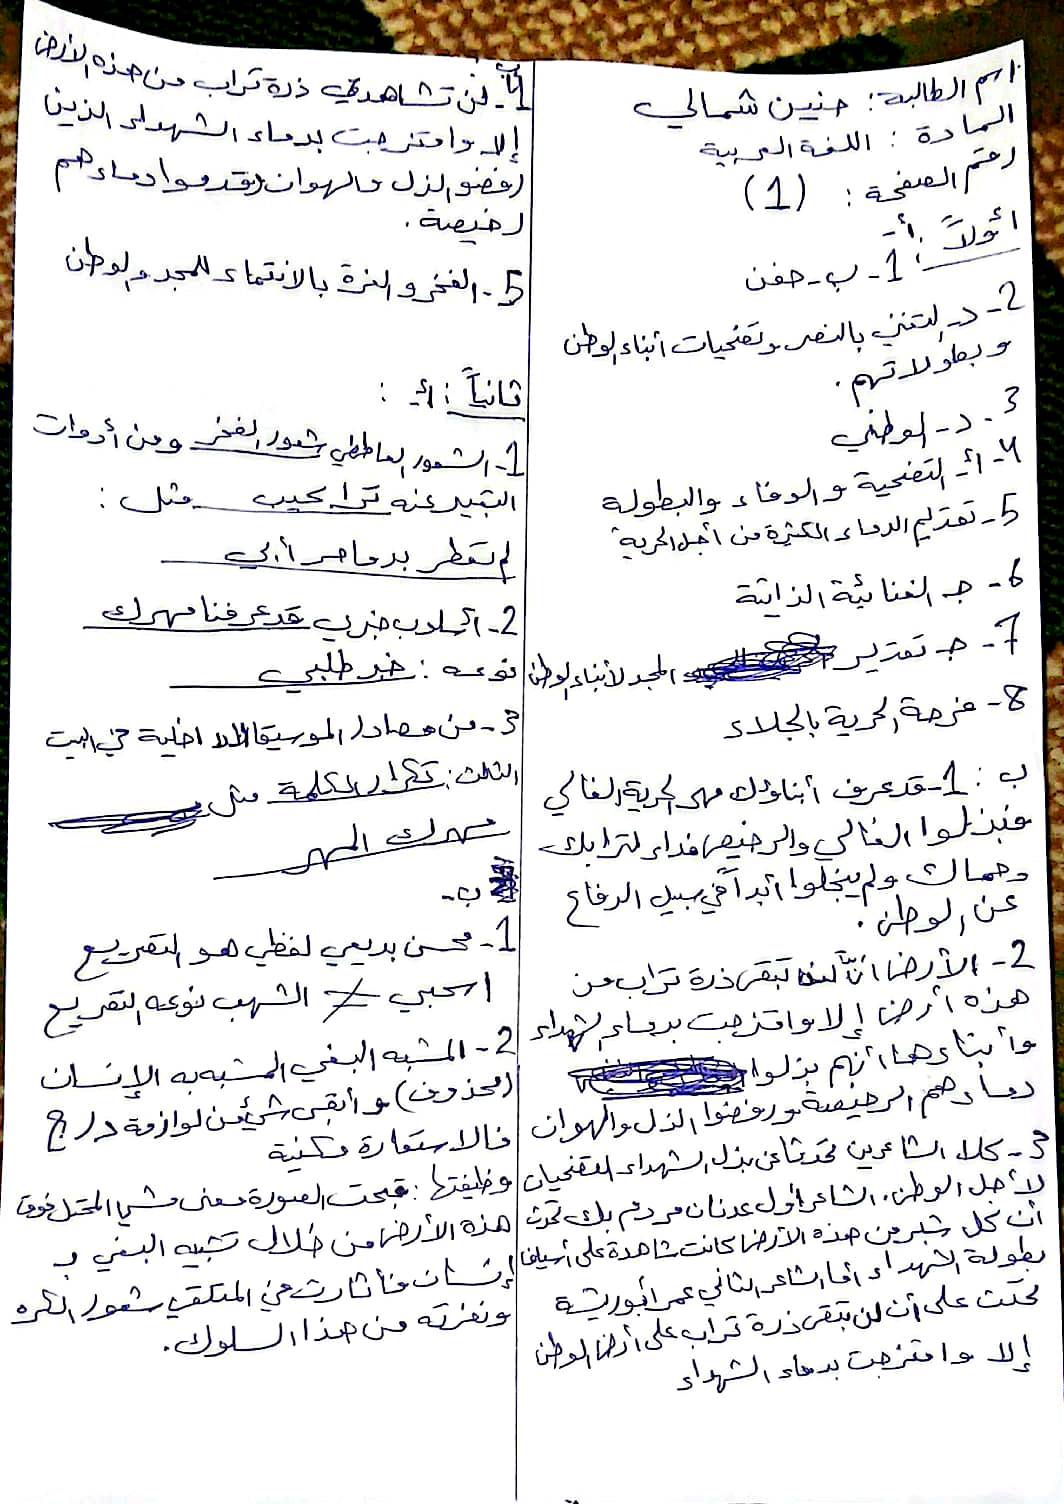 اسم الطالبة: حنين شمالي
المادة: اللغة العربية
رقم الصفحة: (1)
أولاً: أ-
1- ب- جفن
2- د- التغني بالنصر وتضحيات أبناء الوطن
وبطولاتهم.
3- د- الوطني
4- أ- التضحية والوفاء والبطولة
5- تقديم الدماء الكثيرة من أجل الحرية
6- جـ الغنائية الذاتية
7- جـ تقدير المجد لأبناء الوطن
8- فرحة الحرية بالجلاء
ب: 1- قد عرف أبناؤك مهر الحرية الغالي
فبذلوا الغالي والرخيص فداء لترابك
وحماك ولم يبخلوا أبداً في سبيل الدفاع
عن الوطن.
2- الأرض تبقى ذرة تراب من
هذه أرض إلا وامتزجت بدماء الشهداء
وأبناءها أنهم بذلوا
دماءهم الرخيصة ورفضوا الذل والهوان
3- كلا الشاعرين تحدثا عن بذل الشهداء التضحيات
لأجل الوطن. الشاعر أول عدنان مردم بك تحدث
أن كل شبر من هذه الأرض كانت شاهدة على أسياف
بطولة الشهداء أما الشاعر الثاني عمر أبوريشة
تحدث على أن لن تبقى ذرة تراب على أرض الوطن
إلا وامتزجت بدماء الشهداء
4- لن تشاهدي ذرة تراب من هذه الأرض
إلا وامتزجت بدماء الشهداء الذين
رفضو الذل والهوان وقدموا دماءهم
رخيصة.
5- الفخر والعزة بالانتماء للمجد والوطن
ثانياً: أ- :
1- الشعور العاطفي شعور الفخر ومن أدوات
التعبير عنه تراكيب مثل:
لم تعطر بدما حر أبي
2- أسلوب خبري قد عرفنا مهرك
نوعه: خبر طلبي
3- من مصادر الموسيقا الداخلية في البيت
الثالث: تكرار الكلمة مثل
مهرك المهر
ب-
1- محسن بديعي لفظي هو التصريع
اسحبي ≠ الشهب نوعه التصريع
2- المشبه البغي المشبه به الإنسان
(محذوف) وأبقى شيء من لوازمه درج
فالاستعارة مكنية
وظيفتها: قبحت الصورة معنى مشي المحتل فوق
هذه الأرض من خلال تشبيه البغي بـ
إنسان فأثارت في المتلقي شعور الكره
ونفرته من هذا السلوك.